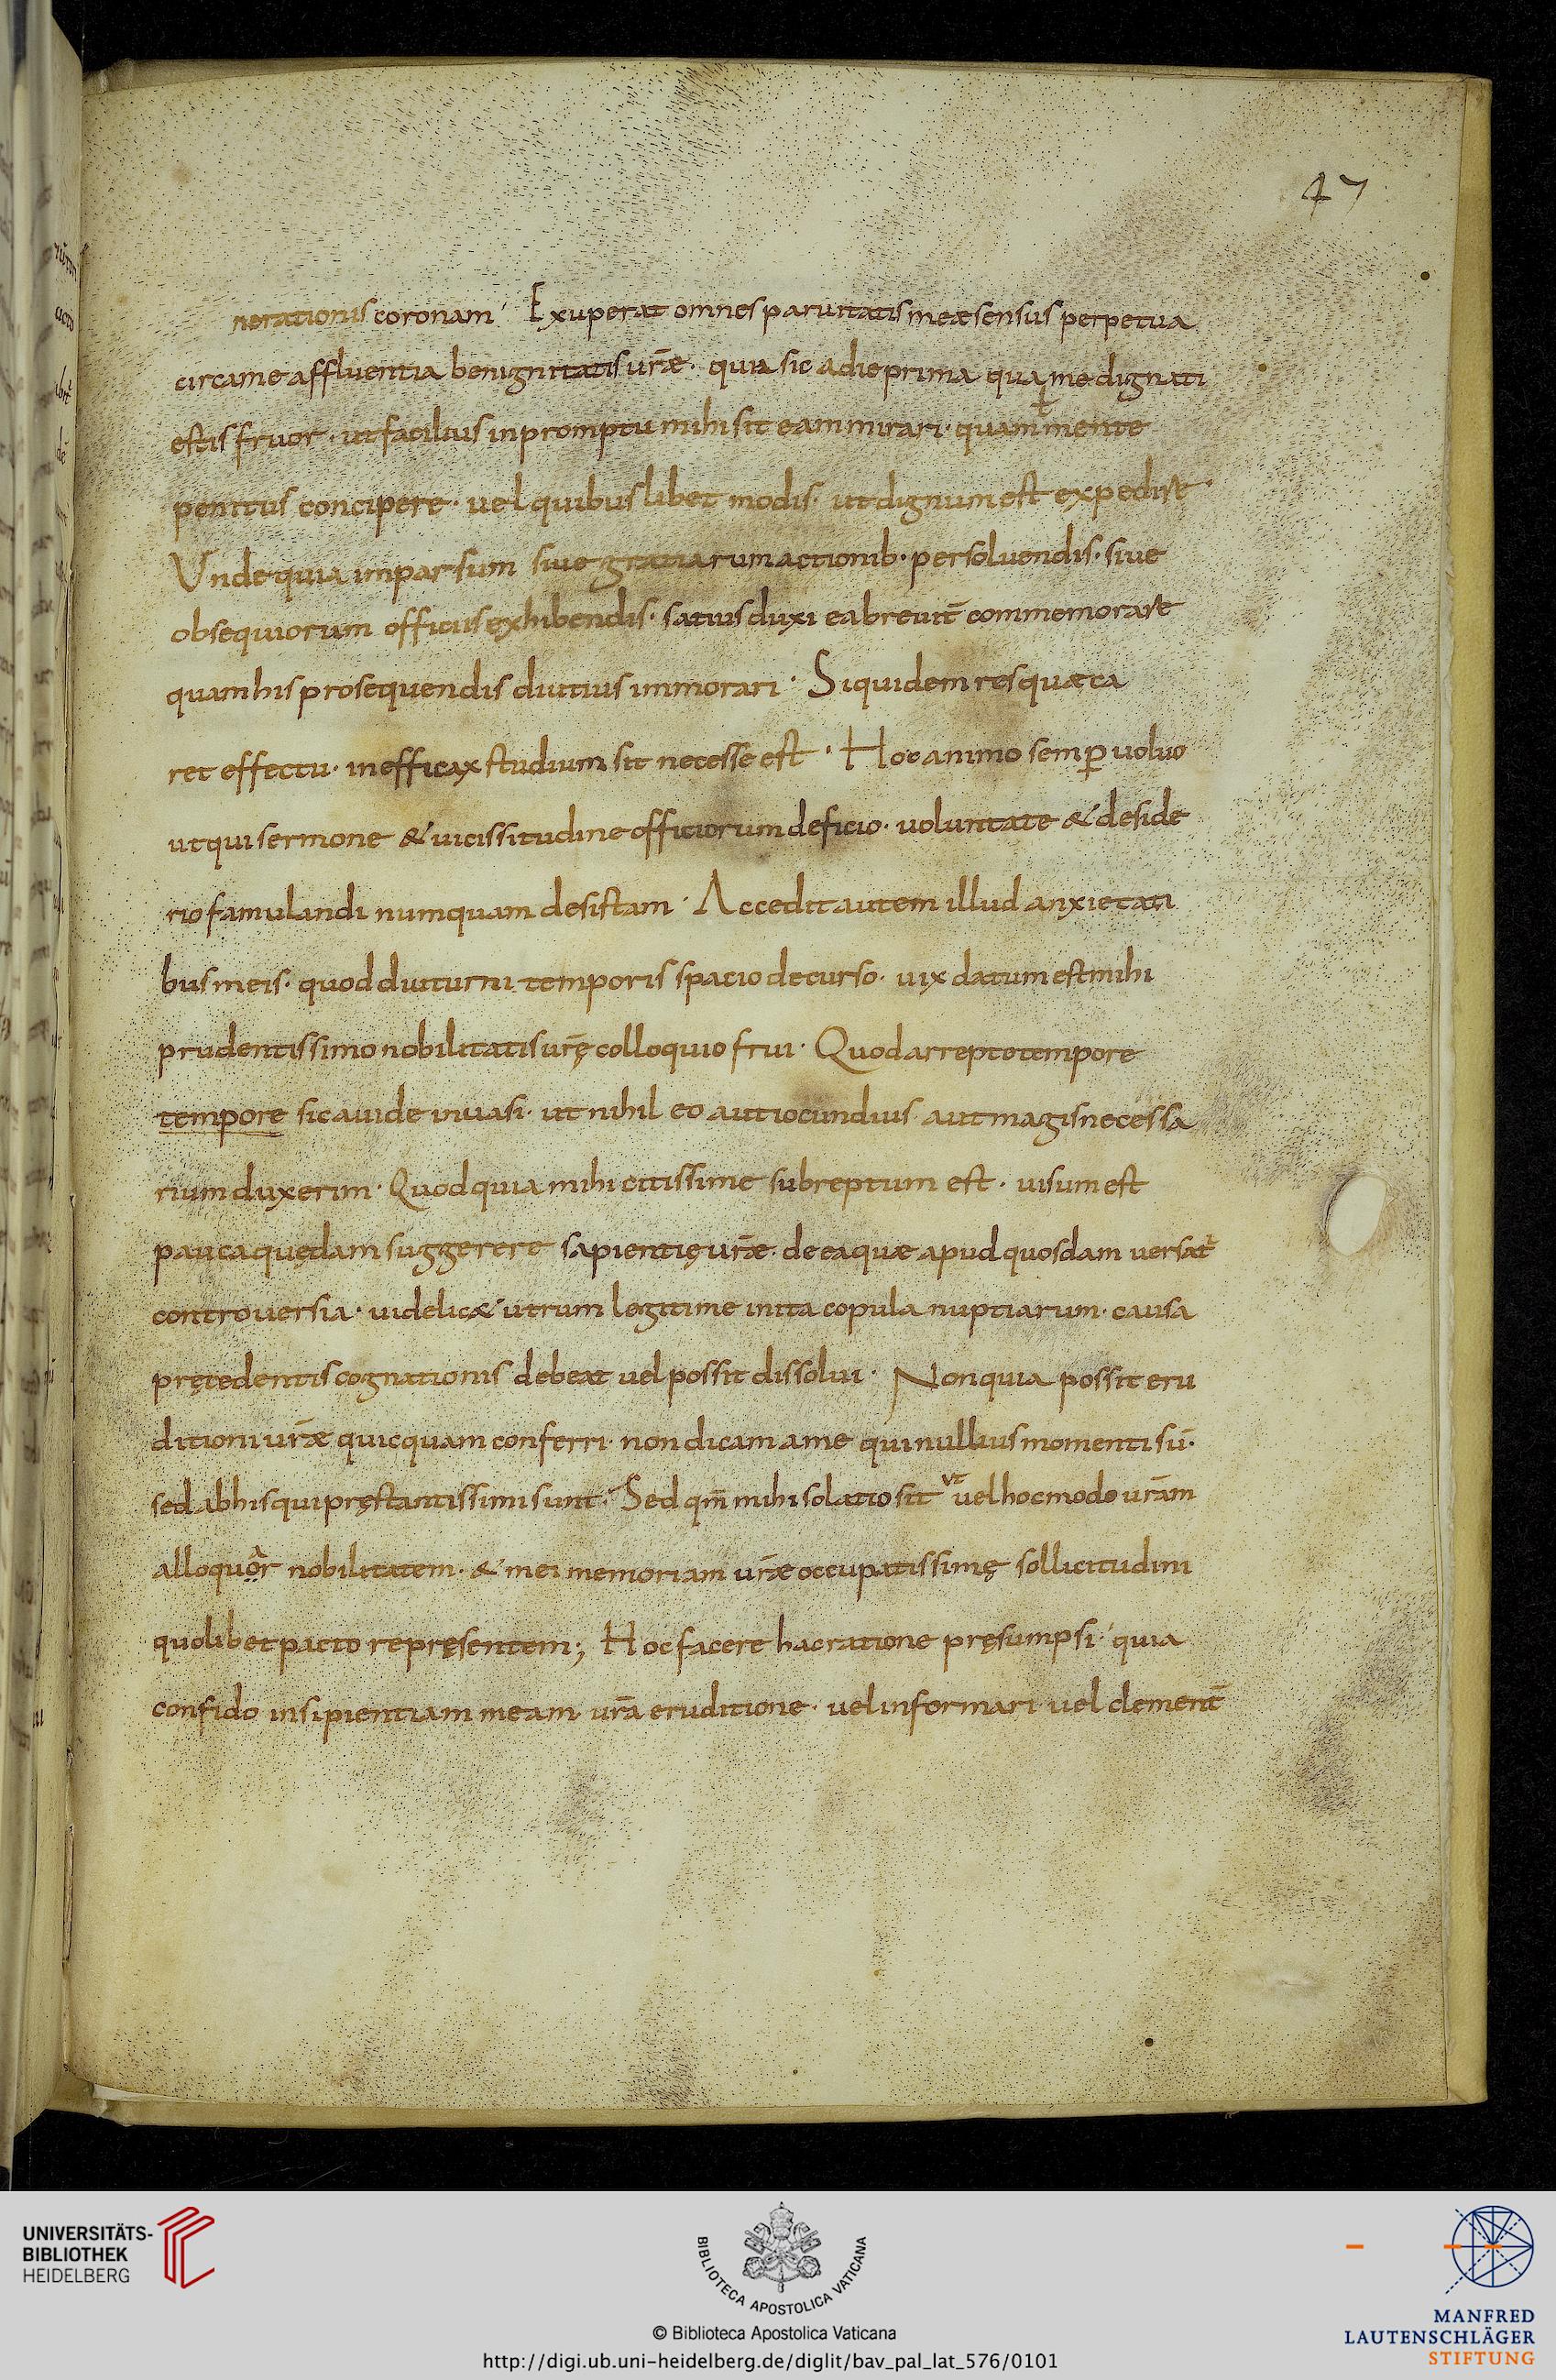 47
nerationis coronam· Exuperat omnes paruitatis meæ sensus perpetua
circa me affluentia benignitatis ur̄æ· quia sic a die prima qua me dignati
estis fruor· ut facilius in promptu mihi sit eam mirari· quam ł mente
penitus concipere· uel quibuslibet modis· ut dignum est expedire·
Vnde quia impar sum siue gratiarum actionib· persoluendis· siue
obsequiorum officiis exhibendis· satius duxi ea breuit̄ commemorare
quam his prosequendis diutius immorari· Siquidem res quæ ca
ret effectu· inefficax studium sit necesse est· Hoc animo semꝑ uoluo
ut qui sermone & uicissitudine officiorum deficio· uoluntate & deside
rio famulandi numquam desistam· Accedit autem illud anxietati
bus meis· quod diuturni temporis spacio decurso· uix datum est mihi
prudentissimo nobilitatis ur̄ę colloquio frui· Quod arrepto tempore
tempore sic auide inuasi· ut nihil eo aut iocundius aut magis necessa
rium duxerim· Quod quia mihi citissime subreptum est· uisum est
pauca quędam suggerere sapientię ur̄æ· de ea quæ apud quosdam uersat᷑
controuersia· uidelic& utrum legitime inita copula nuptiarum· causa
pręcedentis cognationis debeat uel possit dissolui· Non quia possit eru
ditioni ur̄æ quicquam conferri· non dicam a me qui nullius momenti sū·
sed ab his qui pręstantissimi sunt· Sed qm̄ mihi solatio sit ut uel hoc modo ur̄am
alloquar nobilitatem· & mei memoriam ur̄æ occupatissimę sollicitudini
quolibet pacto repręsentem; Hoc facere hac ratione pręsumpsi· quia
confido insipientiam meam ur̄a eruditione· uel informari uel clement̄
UNIVERSITÄTS-
BIBLIOTHEK
HEIDELBERG
BIBLIOTECA APOSTOLICA VATICANA
© Biblioteca Apostolica Vaticana
http://digi.ub.uni-heidelberg.de/diglit/bav_pal_lat_576/0101
MANFRED
LAUTENSCHLÄGER
STIFTUNG